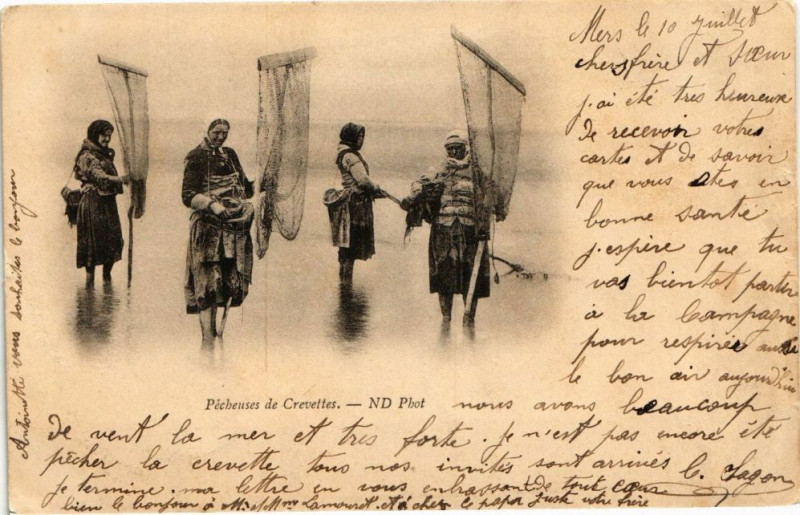 Mers le 10 juillet
chers frère et Sœur
j'ai été tres heureux
de recevoir votres
cartes et de savoir
que vous etes en
bonne santé
j'espère que tu
vas bientot partir
à la Campagne
pour respirer aussi
le bon air aujourd'hui
Pêcheuses de Crevettes. — ND Phot
nous avons beaucoup
de vent la mer et tres forte. je n'est pas encore été
pêcher la crevette tous nos invités sont arrivés
je termine ma lettre en vous enbrassant de tout cœur
bien le bonjour à Mr et Mme Lamourét et à chez le papa votre frère
Antoinette vous souhaites le bonjour